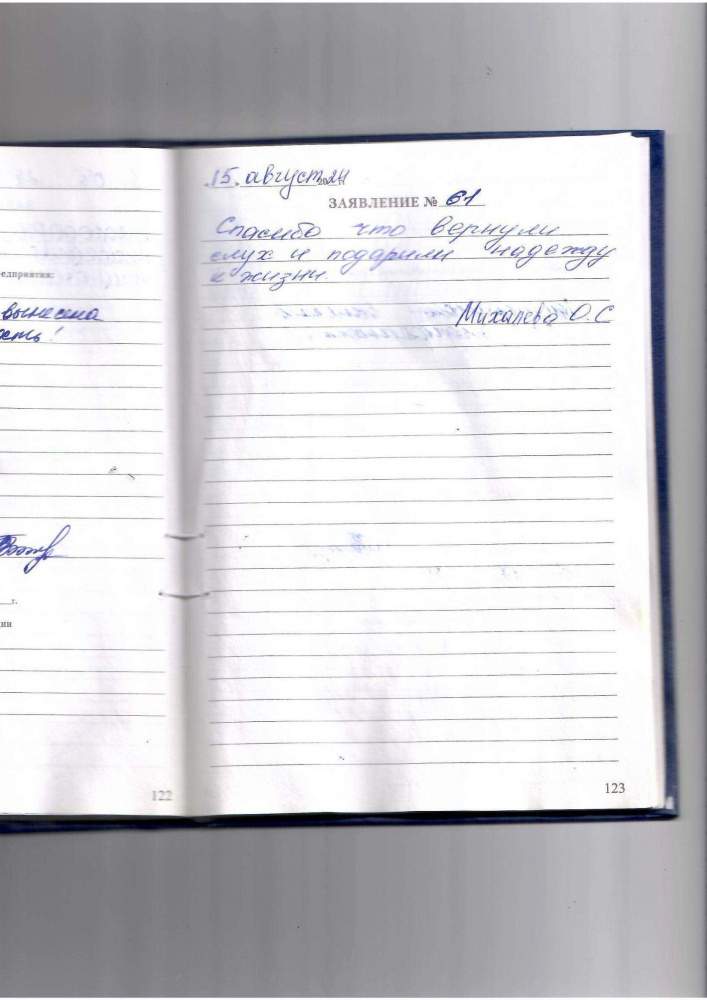 едприятия:
вынесена
ость!
г.
ции
122
15. август 2024
ЗАЯВЛЕНИЕ № 61
Спасибо что вернули
слух и подарили надежду
к жизни.
Михалева О.С
123